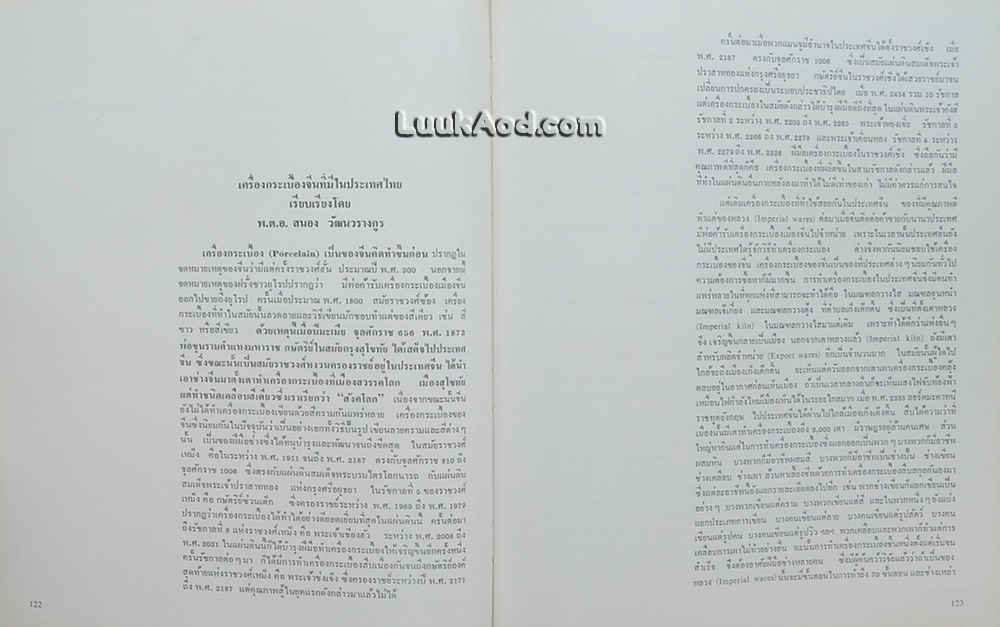 LuukAod.com
เครื่องกระเบื้องจีนที่มีในประเทศไทย
เรียบเรียงโดย
พ.ต.อ. สนอง วัฒนวรางกูร
เครื่องกระเบื้อง (Porcelain) เป็นของจีนคิดทำขึ้นก่อน ปรากฏใน
จดหมายเหตุของจีนว่ามีแต่ครั้งราชวงศ์ฮั่น ประมาณปี พ.ศ. 300 นอกจากนี้
จดหมายเหตุของฝรั่งชาวยุโรปปรากฏว่า มีพ่อค้ารับเครื่องกระเบื้องเมืองจีน
ออกไปขายถึงยุโรป ครั้นเมื่อประมาณ พ.ศ. 1800 สมัยราชวงศ์ซ้อง เครื่อง
กระเบื้องที่ทำในสมัยนั้นลวดลายและวิธีเขียนมักชอบทำแต่ของสีเดียว เช่น สี
ขาว หรือสีเขียว ด้วยเหตุนี้เมื่อปีมะเมีย จุลศักราช 656 พ.ศ. 1873
พ่อขุนรามคำแหงมหาราช กษัตริย์ในสมัยกรุงสุโขทัย ได้เสด็จไปประเทศ
จีน ซึ่งขณะนั้นเป็นสมัยราชวงศ์หงวนครองราชย์อยู่ในประเทศจีน ได้นำ
เอาช่างจีนมาตั้งเตาทำเครื่องกระเบื้องที่เมืองสวรรคโลก เมืองสุโขทัย
แต่ทำชนิดเคลือบสีเดียวซึ่งเราเรียกว่า “สังคโลก” เนื่องจากขณะนั้นจีน
ยังไม่ได้ทำเครื่องกระเบื้องเขียนด้วยสีครามกันแพร่หลาย เครื่องกระเบื้องของ
จีนซึ่งนิยมกันในปัจจุบันว่าเป็นอย่างเอกทั้งวิธีปั้นรูป เขียนลายครามและสีต่างๆ
นั้น เป็นของฝีมือช่างซึ่งได้ทนุบำรุงและพัฒนาจนถึงขีดสุด ในสมัยราชวงศ์
เหม็ง คือในระหว่าง พ.ศ. 1911 จนถึง พ.ศ. 2187 ตรงกับจุลศักราช 810 ถึง
จุลศักราช 1006 ซึ่งตรงกับแผ่นดินสมเด็จพระบรมไตรโลกนารถ กับแผ่นดิน
สมเด็จพระเจ้าปราสาททอง แห่งกรุงศรีอยุธยา ในรัชกาลที่ 5 ของราชวงศ์
เหม็ง คือ กษัตริย์ซ่วนเต็ก ซึ่งครองราชย์ระหว่าง พ.ศ. 1969 ถึง พ.ศ. 1979
ปรากฏว่าเครื่องกระเบื้องได้ทำได้อย่างดียอดเยี่ยมที่สุดในแผ่นดินนี้ ครั้นต่อมา
ถึงรัชกาลที่ 8 แห่งราชวงศ์เหม็ง คือ พระเจ้าเซ่งฮั่ว ระหว่าง พ.ศ. 2008 ถึง
พ.ศ. 2031 ในแผ่นดินนี้ก็ได้บำรุงฝีมือทำเครื่องกระเบื้องให้เจริญขึ้นอีกครั้งหนึ่ง
ครั้นรัชกาลต่อๆ มา ก็ได้มีการทำเครื่องกระเบื้องสืบเนื่องกันจนถึงกษัตริย์องค์
สุดท้ายแห่งราชวงศ์เหม็ง คือ พระเจ้าซ่งเจ็ง ซึ่งครองราชย์ระหว่างปี พ.ศ. 2171
ถึง พ.ศ. 2187 แต่คุณภาพสู้ในยุคแรกดังกล่าวมาแล้วไม่ได้
122
ครั้นต่อมาเมื่อพวกแมนจูมีอำนาจในประเทศจีนได้ตั้งราชวงศ์เช็ง เมื่อ
พ.ศ. 2187 ตรงกับจุลศักราช 1006 ซึ่งเป็นสมัยแผ่นดินสมเด็จพระเจ้า
ปราสาททองแห่งกรุงศรีอยุธยา กษัตริย์จีนในราชวงศ์เช็งได้เสวยราชย์มาจน
เปลี่ยนการปกครองเป็นระบอบประชาธิปไตย เมื่อ พ.ศ. 2454 รวม 10 รัชกาล
แต่เครื่องกระเบื้องในสมัยดังกล่าวได้บำรุงฝีมือดีถึงที่สุด ในแผ่นดินพระเจ้าคังฮี
รัชกาลที่ 2 ระหว่าง พ.ศ. 2205 ถึง พ.ศ. 2265 พระเจ้าหยงเจิ้ง รัชกาลที่ 3
ระหว่าง พ.ศ. 2266 ถึง พ.ศ. 2278 และพระเจ้าเคี่ยนหลง รัชกาลที่ 4 ระหว่าง
พ.ศ. 2279 ถึง พ.ศ. 2338 ฝีมือเครื่องกระเบื้องในราชวงศ์เช็ง ซึ่งถือกันว่ามี
คุณภาพดีที่สุดก็คือ เครื่องกระเบื้องที่ผลิตขึ้นในสามรัชกาลดังกล่าวแล้ว ฝีมือ
ที่ทำในแผ่นดินอื่นภายหลังลงมาทำได้ไม่ดีเท่าของเก่า ไม่มีค่าควรแก่การสนใจ
แต่เดิมเครื่องกระเบื้องที่ทำใช้สอยกันในประเทศจีน ของที่มีคุณภาพดี
ทำแต่ของหลวง (Imperial wares) ต่อมาเมื่อจีนติดต่อค้าขายกับนานาประเทศ
มีพ่อค้ารับเครื่องกระเบื้องเมืองจีนไปจำหน่าย เพราะในเวลานั้นประเทศอื่นยัง
ไม่มีประเทศใดรู้จักวิธีทำเครื่องกระเบื้อง ต่างจึงพากันนิยมชอบใช้เครื่อง
กระเบื้องของจีน เครื่องกระเบื้องของจีนเป็นของที่ประเทศต่างๆ นิยมกันทั่วไป
ความต้องการซื้อหาก็มีมากขึ้น การทำเครื่องกระเบื้องในประเทศจีนจึงมีคนทำ
แพร่หลายในที่ทุกแห่งที่สามารถจะทำได้คือ ในมณฑลกวางไส มณฑลฮูนหนำ
มณฑลเจ้เกี๋ยง และมณฑลกวางตุ้ง ที่ตำบลเก็งเต็กติ้น ซึ่งเป็นที่ตั้งเตาหลวง
(Imperial kiln) ในมณฑลกวางไสมาแต่เดิม เพราะทำได้ดีกว่าแห่งอื่นๆ
จึงเจริญขึ้นกลายเป็นเมือง นอกจากเตาหลวงแล้ว (Imperial kiln) ยังมีเตา
สำหรับผลิตจำหน่าย (Export wares) อีกเป็นจำนวนมาก ในสมัยนั้นผู้ใดไป
ใกล้จะถึงเมืองเก็งเต็กติ้น จะเห็นแต่ควันออกจากเตาเผาเครื่องกระเบื้องคลุ้ง
ตลบอยู่ในอากาศก่อนเห็นเมือง ถ้าเป็นเวลากลางคืนก็จะเห็นแสงไฟจับท้องฟ้า
เหมือนไฟกำลังไหม้เมืองเห็นได้ในระยะไกลมาก เมื่อ พ.ศ. 2335 ลอร์ดมะคาทนี่
ราชทูตอังกฤษ ไปประเทศจีนได้ผ่านไปใกล้เมืองเก็งเต็กติ้น สืบได้ความว่าที่
เมืองนั้นมีเตาทำเครื่องกระเบื้องถึง 3,000 เตา มีราษฎรอยู่ล้านคนเศษ ส่วน
ใหญ่หากินแต่ในการทำเครื่องกระเบื้องซึ่งแยกออกเป็นพวกๆ บางพวกก็มีอาชีพ
ผสมหิน บางพวกก็มีอาชีพผสมสี บางพวกก็มีอาชีพเป็นช่างปั้น ช่างเขียน
ช่างเคลือบ ช่างเผา ล้วนหาเลี้ยงชีพด้วยการทำเครื่องกระเบื้องสืบสกุลกันลงมา
ซึ่งแต่ละอาชีพยังแยกรายละเอียดลงไปอีก เช่น พวกช่างเขียนก็แยกเขียนเป็น
อย่างๆ บางพวกเขียนแต่คราม บางพวกเขียนแต่สี และในพวกหนึ่งๆ ยังแบ่ง
แยกประเภทการเขียน บางคนเขียนแต่ลาย บางคนเขียนแต่รูปสัตว์ บางคน
เขียนแต่รูปคน บางคนเขียนแต่รูปวิว ฯลฯ พวกเคลือบและพวกเผาก็ทำแต่การ
เคลือบการเผาไม่ทำอย่างอื่น ฉะนั้นการทำเครื่องกระเบื้องชิ้นหนึ่งตั้งแต่เริ่มจน
สำเร็จ จึงต้องอาศัยฝีมือช่างหลายคน ซึ่งมีผู้ค้นคว้าวิจัยแล้วว่าถ้าเป็นของ
หลวง (Imperial wares) นั้นจะมีขั้นตอนในการทำถึง 70 ขั้นตอน และช่างเหล่า
123